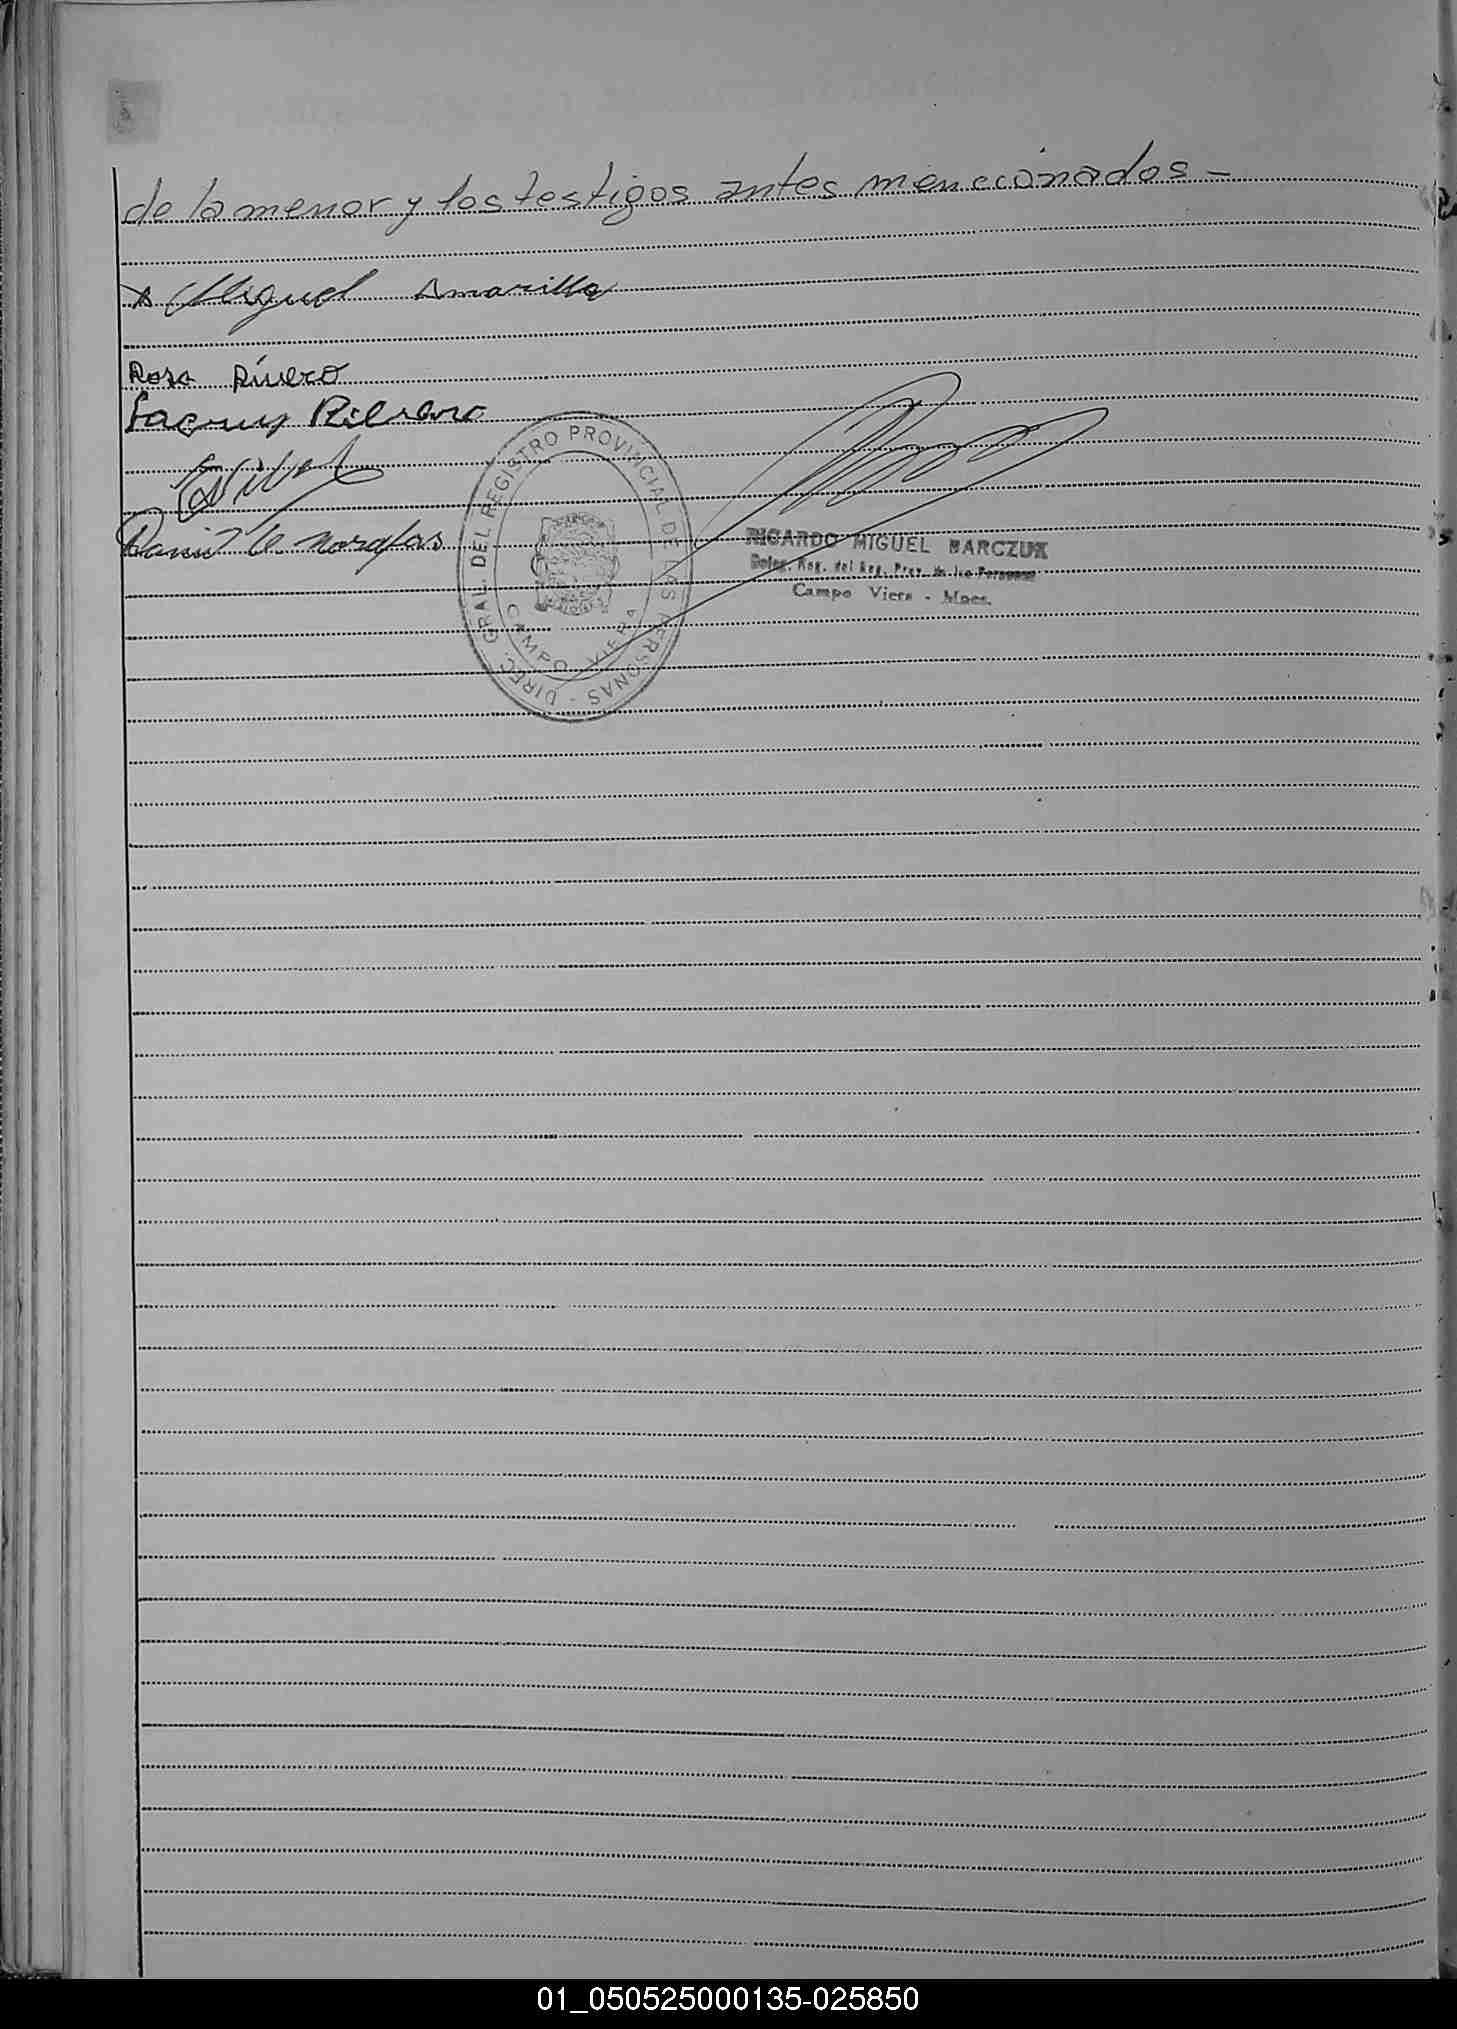 de la menor y los testigos antes menecionados -
x Miguel Amarilla
Rosa Rivero
DIREC. GRAL. DEL REGISTRO PROVINCIAL DE LAS PERSONAS -
CAMPO VIERA
MISIONES
RICARDO MIGUEL BARCZUK
Deleg. Reg. del Reg. Prov. de las Personas
Campo Viera - Mnes.
01_050525000135-025850